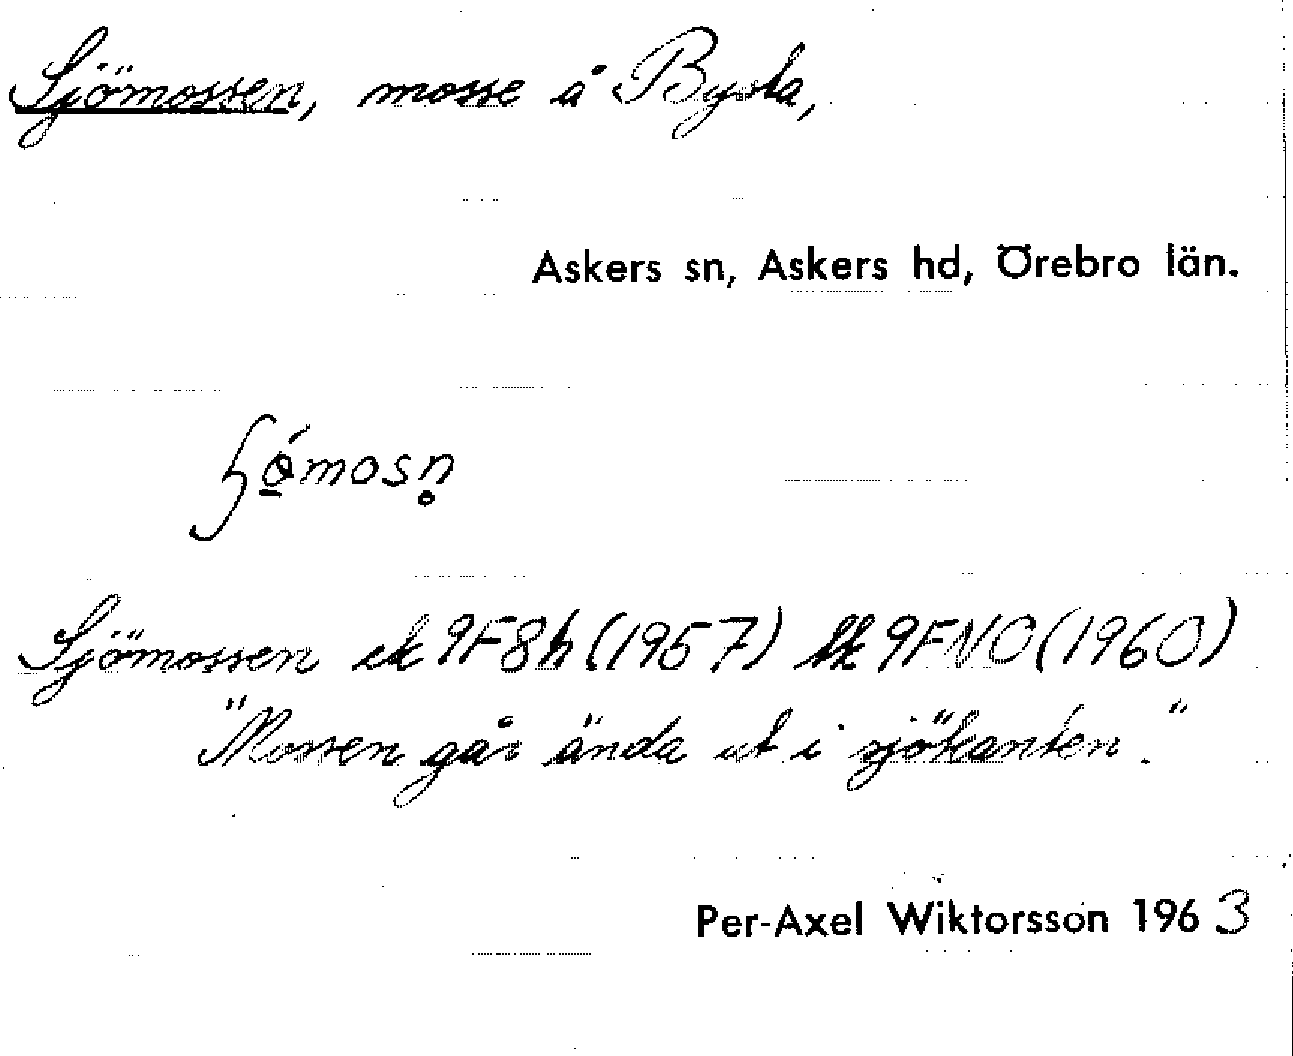 Sjömossen, mosse å Bysta,
Askers sn, Askers hd, Örebro län.
Sjömossen ek 9F8h (1957) tk 9FNO (1960)
"Mossen går ända ut i sjökanten."
Per-Axel Wiktorsson 1963